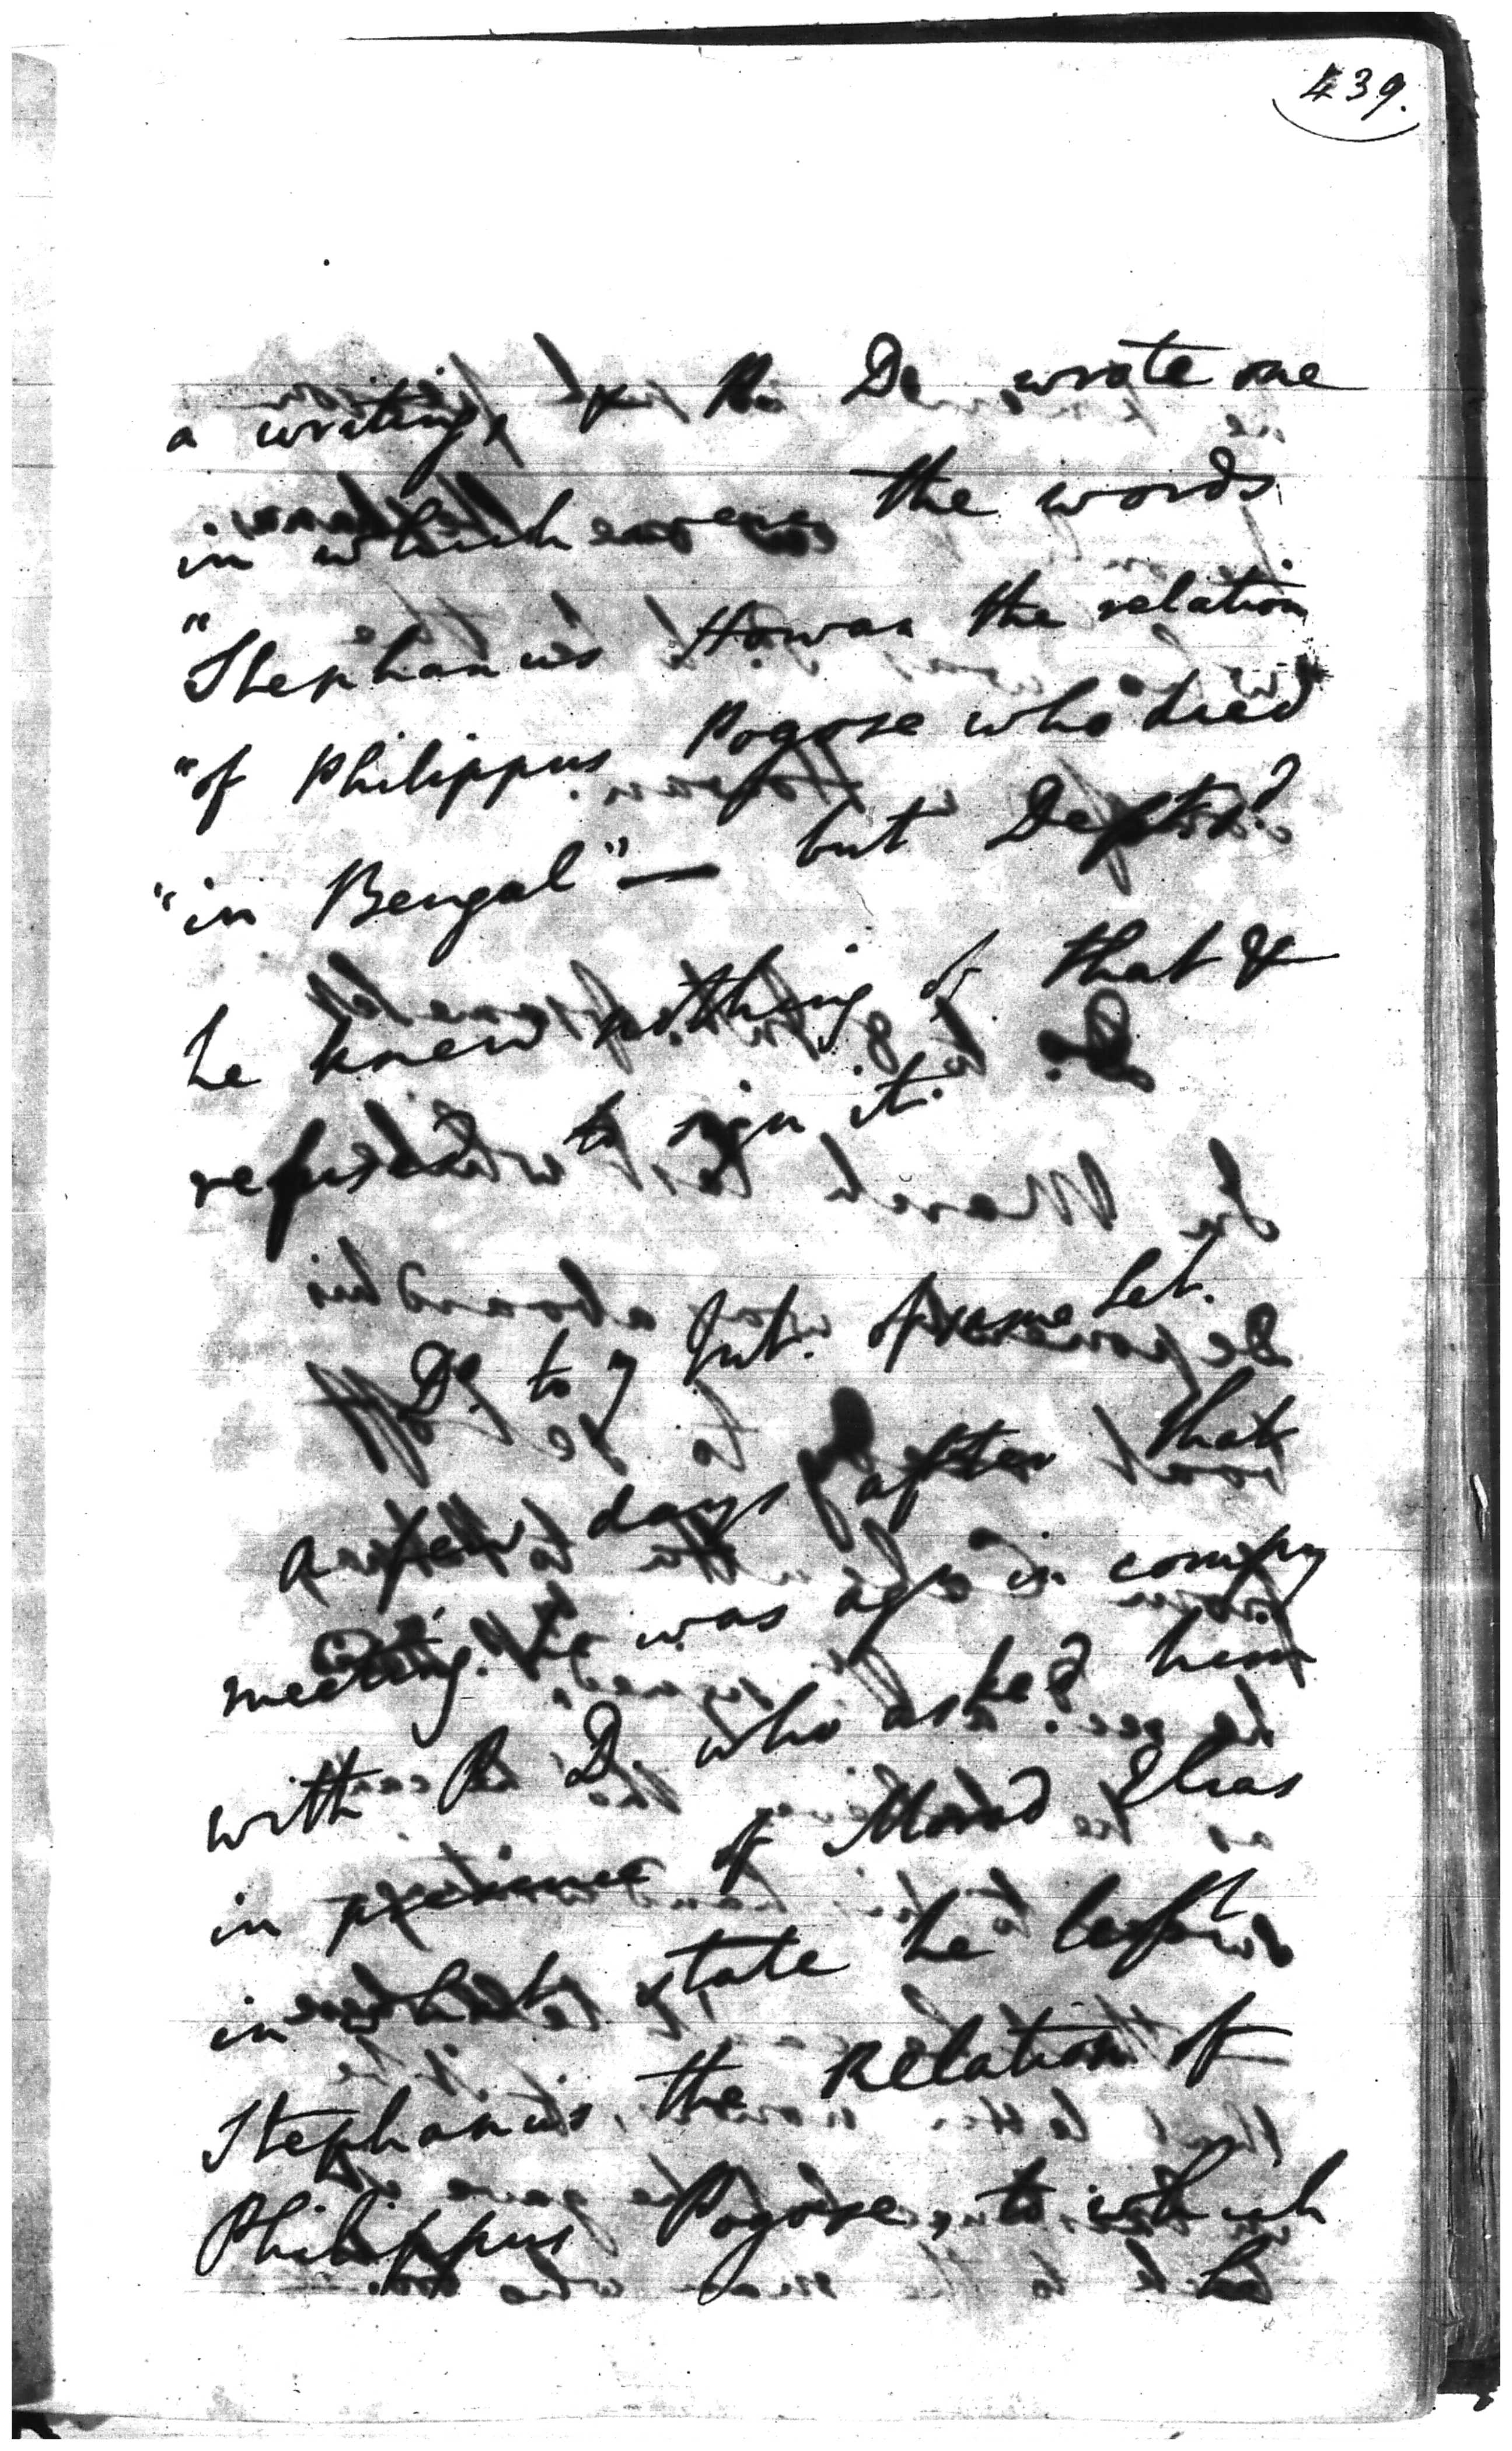 439.
a writing, & R. D. wrote one
in which were the words
"Stephanus Howan the relation
"of Philippus Pogose who died
"in Bengal" — but Dept.
he knew nothing of that &
refused to sign it.
Do. to 7 Int. of same Set.
A few days after that
meeting he was again in company
with R. D. who asked him
in presence of Morad Elias
in what state he left
Stephanus, the Relation of
Philippus Pogose, to which
he